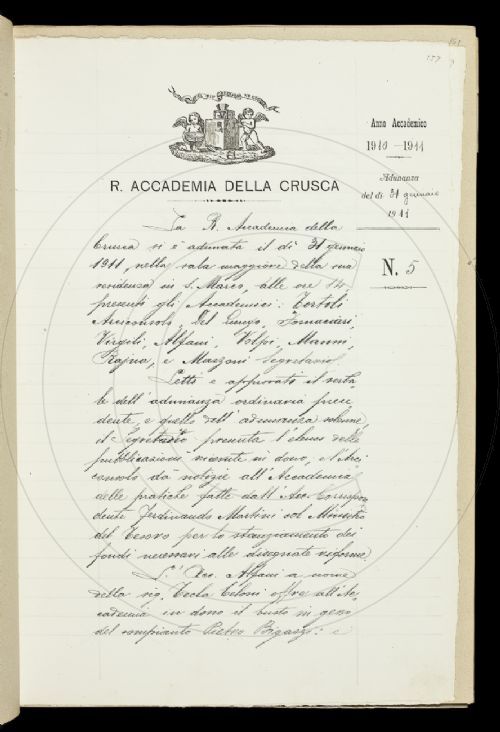 157
Anno Accademico
1910 - 1911
Adunanza
del dì 31 gennaio
1911
N. 5
R. ACCADEMIA DELLA CRUSCA
La R. Accademia della
Crusca si è adunata il dì 31 gennaio
1911, nella sala maggiore della sua
residenza in S. Marco, alle ore 14,
presenti gli Accademici: Tortoli
Arciconsolo, Del Lungo, Fornaciari,
Virgili, Alfani, Volpi, Manni,
Rajna, e Mazzoni Segretario.
Letti e approvati il verba
le dell'adunanza ordinaria prece
dente, e quello dell'adunanza solenne,
il Segretario presenta l'elenco delle
pubblicazioni ricevute in dono, e l'Arci
consolo dà notizie all'Accademia
delle pratiche fatte dall'Acc. Corrispon
dente Ferdinando Martini col Ministro
del Tesoro per lo stanziamento dei
fondi necessari alle disegnate riforme.
L'Acc. Alfani a nome
della sig. Tecla Celoni offre all'Ac,
cademia in dono il busto in gesso
del compianto Pietro Bigazzi: e